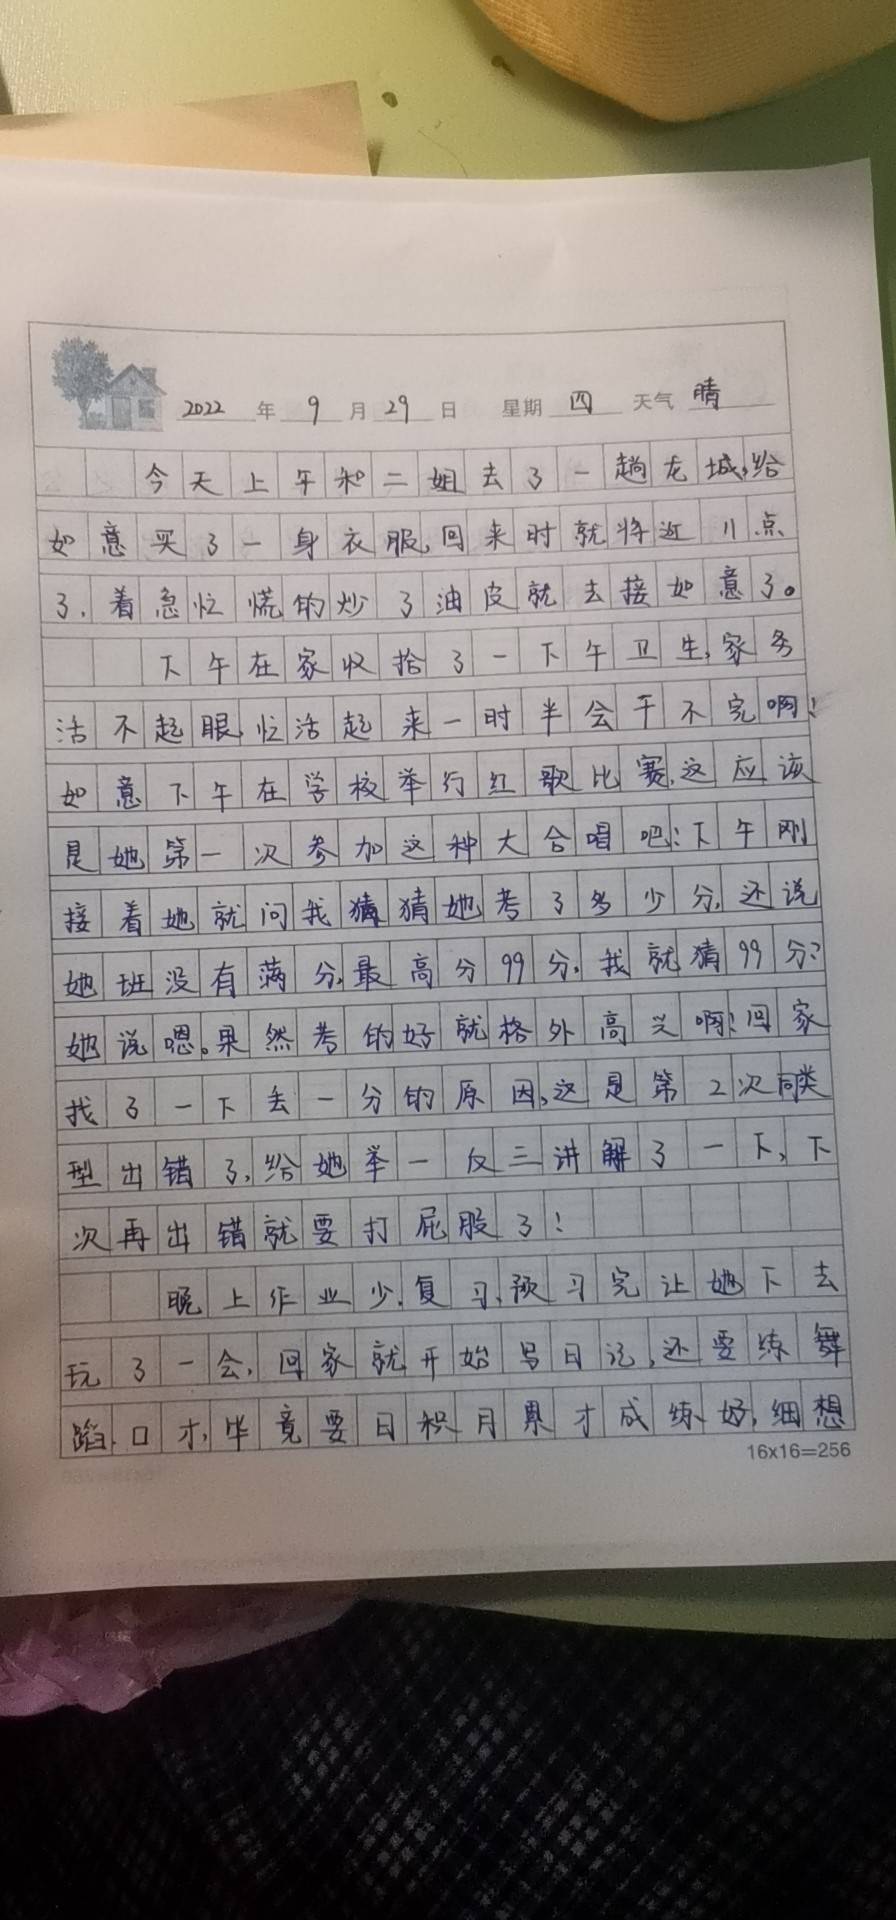 2022年9月29日 星期四 天气晴
今天上午和二姐去了一趟龙城,给
如意买了一身衣服,回来时就将近11点
了.着急忙慌的炒了油皮就去接如意了。
下午在家收拾了一下午卫生,家务
活不起眼,忙活起来一时半会干不完啊!
如意下午在学校举行红歌比赛,这应该
是她第一次参加这种大合唱吧!下午刚
接着她就问我猜猜她考了多少分,还说
她班没有满分,最高分99分,我就猜99分?
她说嗯。果然考的好就格外高兴啊!回家
找了一下丢一分的原因,这是第2次同类
型出错了,给她举一反三讲解了一下,下
次再出错就要打屁股了!
晚上作业少,复习、预习完让她下去
玩了一会,回家就开始写日记,还要练舞
蹈、口才,毕竟要日积月累才成练好,细想
16x16=256